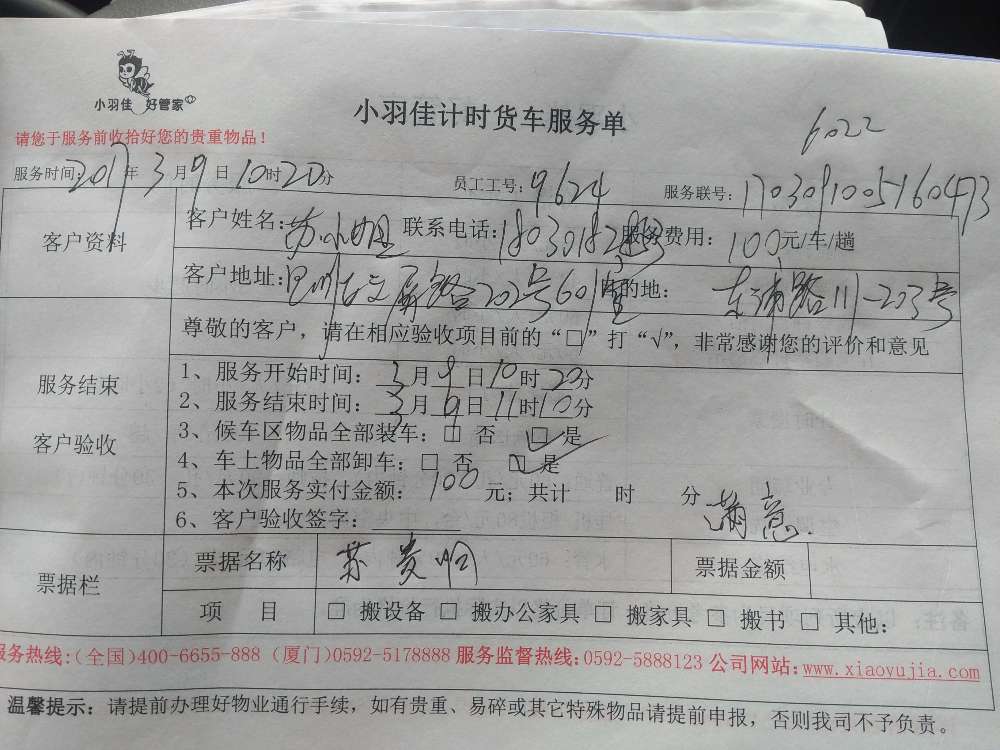 小羽佳 好管家
小羽佳计时货车服务单
6022
请您于服务前收拾好您的贵重物品！
服务时间：2017年3月9日10时20分 员工工号：9624 服务联号：1703091005160473
客户资料
客户姓名：苏小姐 联系电话： 服务费用：100元/车/趟
客户地址： 文屏路202号601室 目的地：东浦路111-203号
尊敬的客户，请在相应验收项目前的“□”打“√”，非常感谢您的评价和意见
服务结束
客户验收
1、服务开始时间：3月9日10时20分
2、服务结束时间：3月9日11时10分
3、候车区物品全部装车：□ 否 □√是
4、车上物品全部卸车：□ 否 □√是
5、本次服务实付金额：100 元；共计 时 分
满意
6、客户验收签字：
票据栏
票据名称 苏贵 票据金额
项 目 □ 搬设备 □ 搬办公家具 □ 搬家具 □ 搬书 □ 其他：
服务热线：(全国)400-6655-888 (厦门)0592-5178888 服务监督热线：0592-5888123 公司网站：www.xiaoyujia.com
温馨提示：请提前办理好物业通行手续，如有贵重、易碎或其它特殊物品请提前申报，否则我司不予负责。